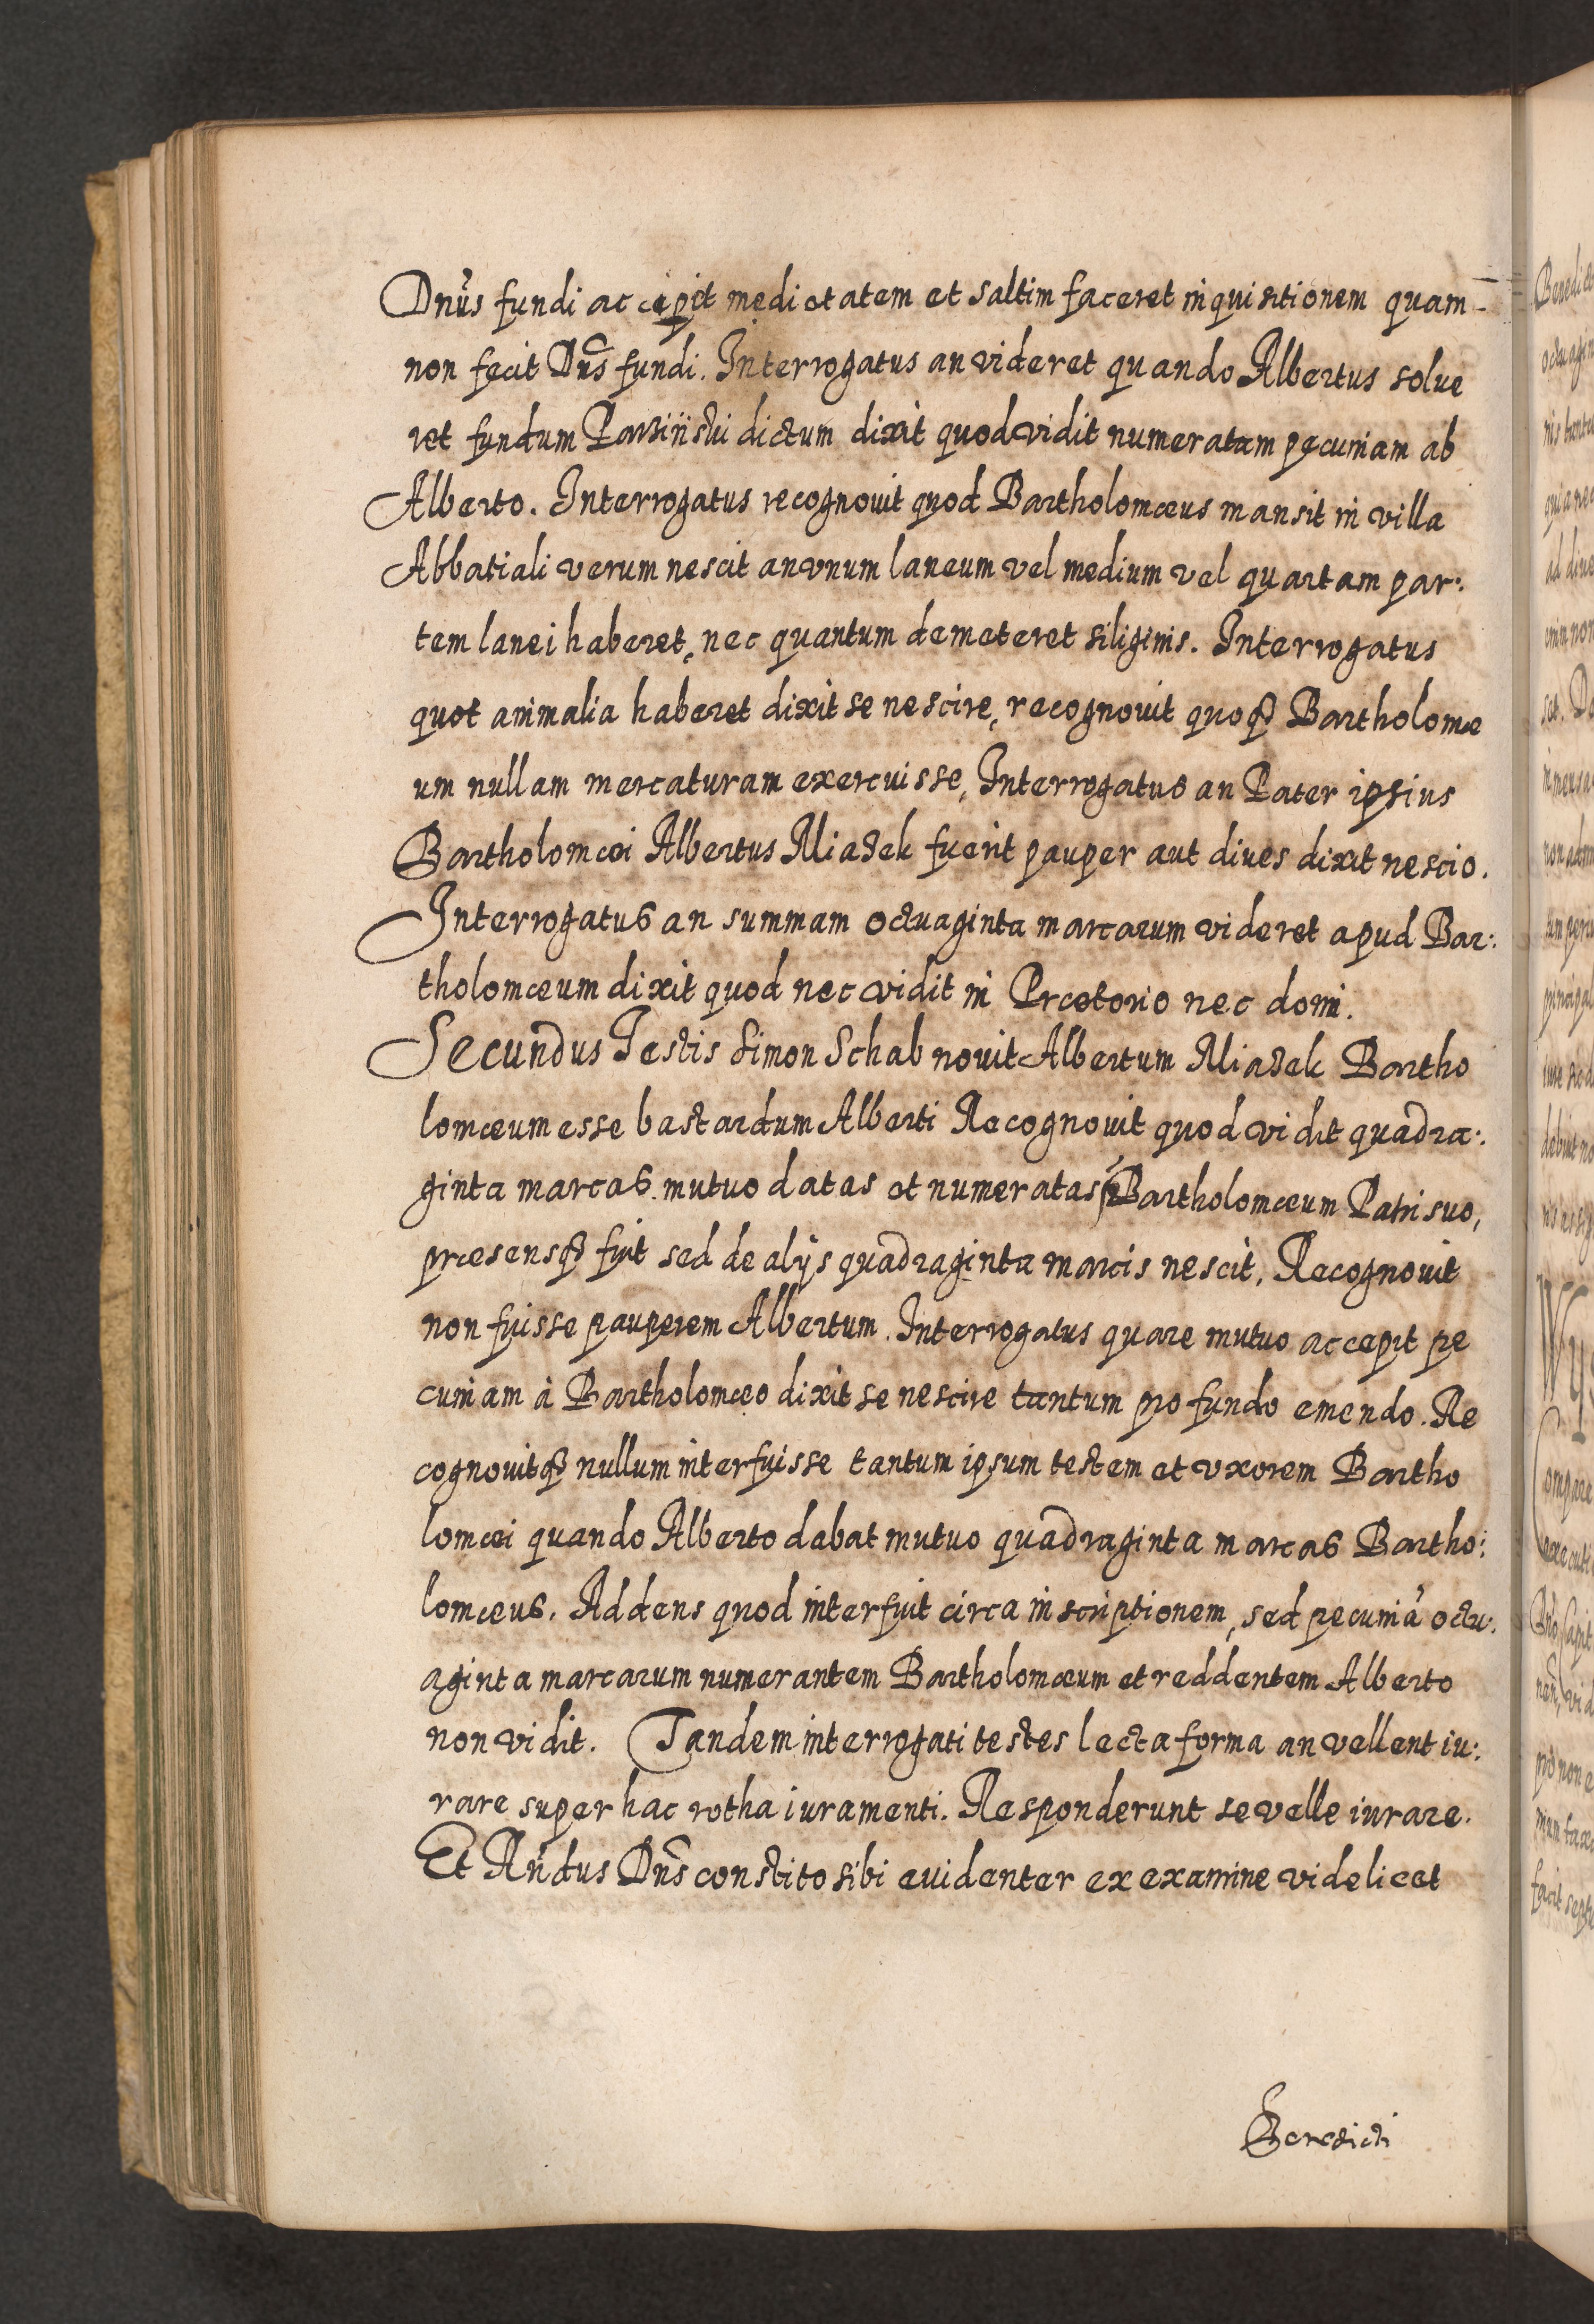 Dnus fundi accepit medietatem et saltim faceret inquisitionem quam-
non fecit Dns fundi. Interrogatus an videret quando Albertus solue
ret fundum dictum dixit quod vidit numeratam pecuniam ab
Alberto. Interrogatus recognouit quod Bartholomæus mansit in villa
Abbatiali verum nescit an vnum laneum vel medium vel quartam par:
tem lanei haberet, nec quantum demeteret siliginis. Interrogatus
quot animalia haberet dixit se nescire, recognouit quoq3 Bartholomæ
um nullam mercaturam exercuisse, Interrogatus an Pater ipsius
Bartholomæi Albertus Miadek fuerit pauper aut diues dixit nescio.
Interrogatus an summam octuaginta marcarum videret apud Bar:
tholomæum dixit quod nec vidit in Prætorio nec domi.
Secundus Testis Simon Schab nouit Albertum Miadek Bartho
lomæum esse bastardum Alberti Recognouit quod vidit quadra:
ginta marcas mutuo datas et numeratas p Bartholomæum Patri suo,
præsensq3 fuit sed de alijs quadraginta marcis nescit, Recognouit
non fuisse pauperem Albertum. Interrogatus quare mutuo accepit pe
cuniam à Bartholomæo dixit se nescire tantum pro fundo emendo. Re
cognouitq3 nullum interfuisse tantum ipsum testem et vxorem Bartho
lomæi quando Alberto dabat mutuo quadraginta marcas Bartho:
lomæus. Addens quod interfuit circa inscriptionem, sed pecuniã octu:
aginta marcarum numerantem Bartholomæum et reddentem Alberto
non vidit. Tandem interrogati testes lecta forma an vellent iu:
rare super hac rotha iuramenti. Responderunt se velle iurare.
Et Rndus Dns constito sibi euidenter ex examine videlicet
Benedicti